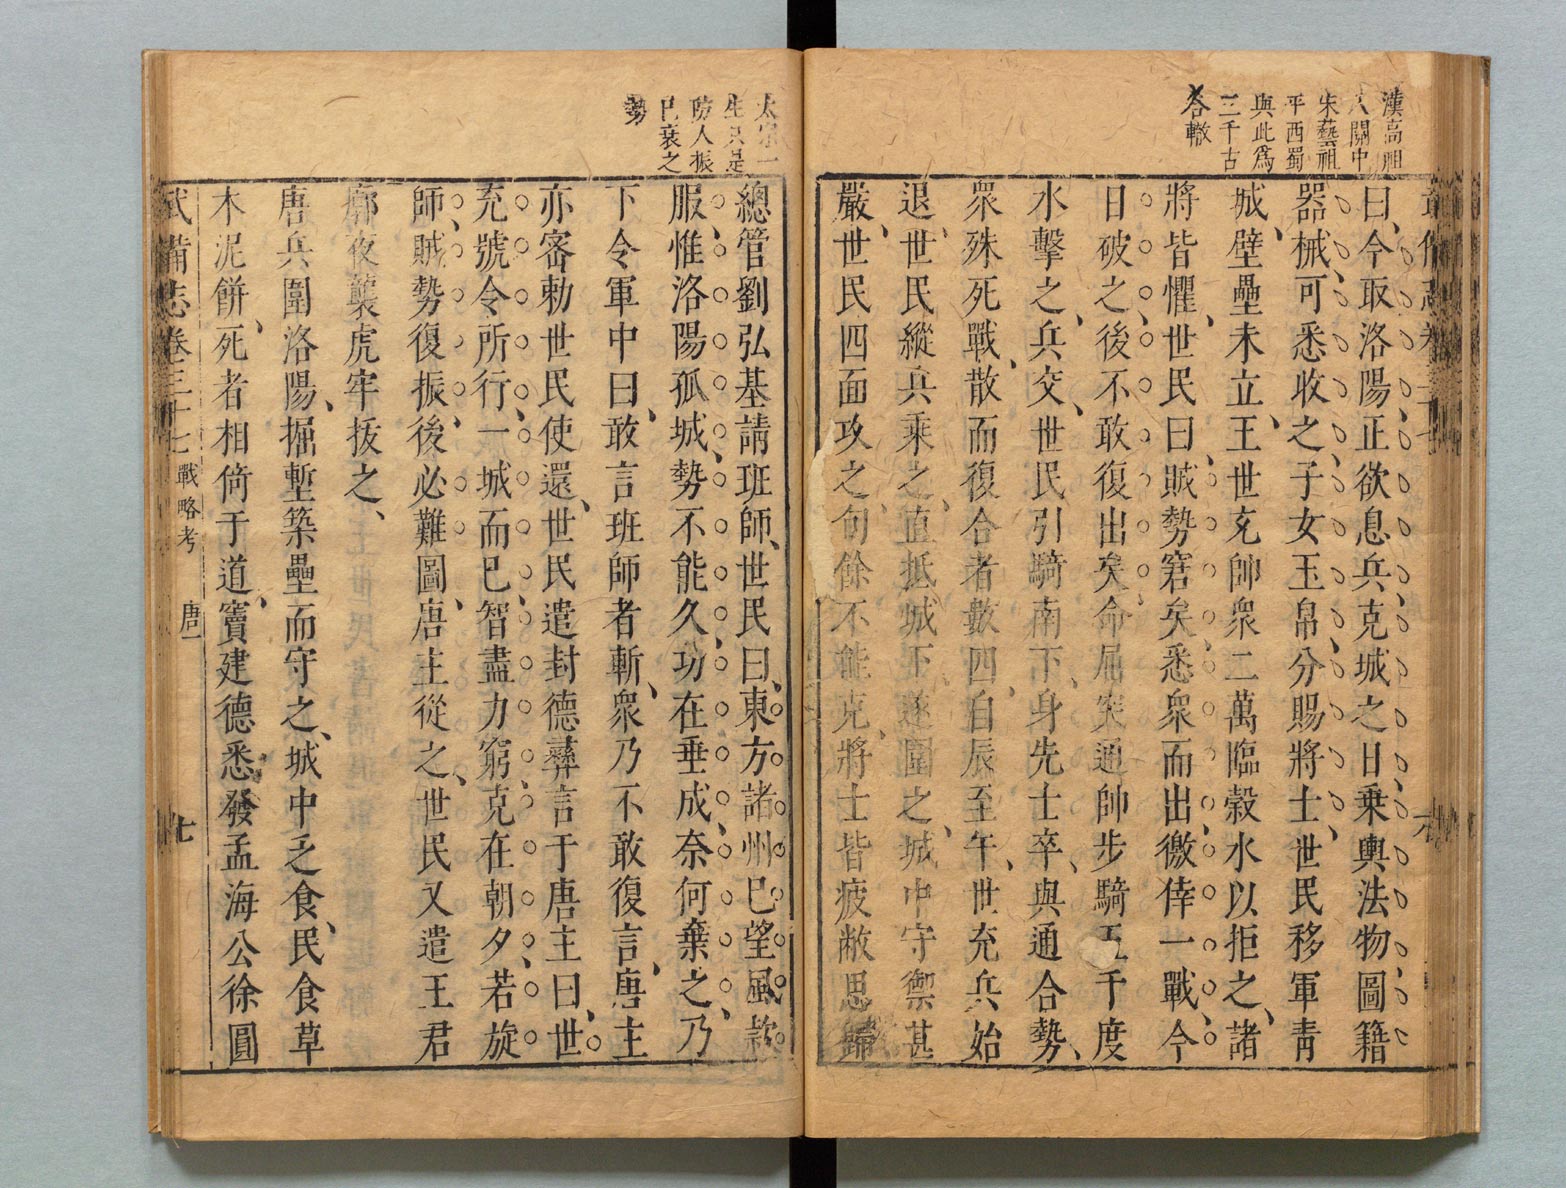 漢高祖
入關中
朱藝祖
平西蜀
與此爲
三千古
合轍
曰、今取洛陽正欲息兵、克城之日、乗輿法物圖籍
器械、可悉收之、子女玉帛、分賜將士、世民移軍靑
城、壁壘未立、王世充帥衆二萬臨穀水以拒之、諸
將皆懼、世民曰、賊勢窘矣、悉衆而出、徼倖一戰、今
日破之、後不敢復出矣、命屈突通帥步騎五千度
水擊之、兵交、世民引騎南下、身先士卒、與通合勢、
衆殊死戰、散而復合者數四、自辰至午、世充兵始
退、世民縱兵乗之、直抵城下、遂圍之、城中守禦甚
嚴、世民四面攻之、旬餘不能克、將士皆疲敝思歸
太宗一
生只是
防人振
已衰之
勢
總管劉弘基請班師、世民曰、東方諸州已望風欵
服、惟洛陽孤城、勢不能久、功在垂成、奈何棄之、乃
下令軍中曰、敢言班師者斬、衆乃不敢復言、唐主
亦密勅世民使還、世民遣封德彝言于唐主曰、世
充號令所行、一城而已、智盡力窮、克在朝夕、若旋
師、賊勢復振、後必難圖、唐主從之、世民又遣王君
廓夜襲虎牢拔之、
唐兵圍洛陽、掘塹築壘而守之、城中乏食、民食草
木泥餅、死者相倚于道、竇建德悉發孟海公徐圓
武備志卷三十七 戰略考 唐一 七